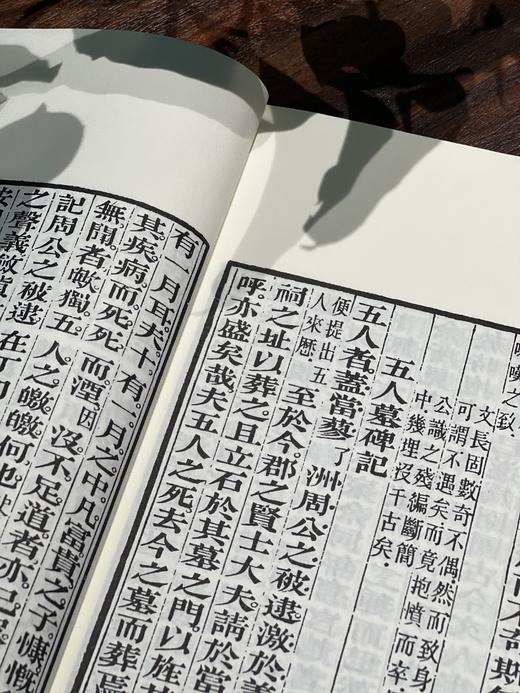 嘆之致
文長固數奇不偶然而致身
可謂不遇矣而竟抱憤而卒
公識之殘編斷簡
中幾埋沒千古矣
五人墓碑記
五人者。蓋當蓼了洲周公之被逮激於義
便提出五
人來歷
至於今郡之賢士大夫請於當
祠之址以葬之且立石於其墓之門以旌
呼。亦盛矣哉夫五人之死去今之墓而葬焉
有一月耳夫十有一月之中凡富貴之子慷慨
其疾病而死死而湮因沒不足道者亦已
無聞者歟獨五人之皦皦何也
記周公之被逮在丁卯
之聲義斂貲